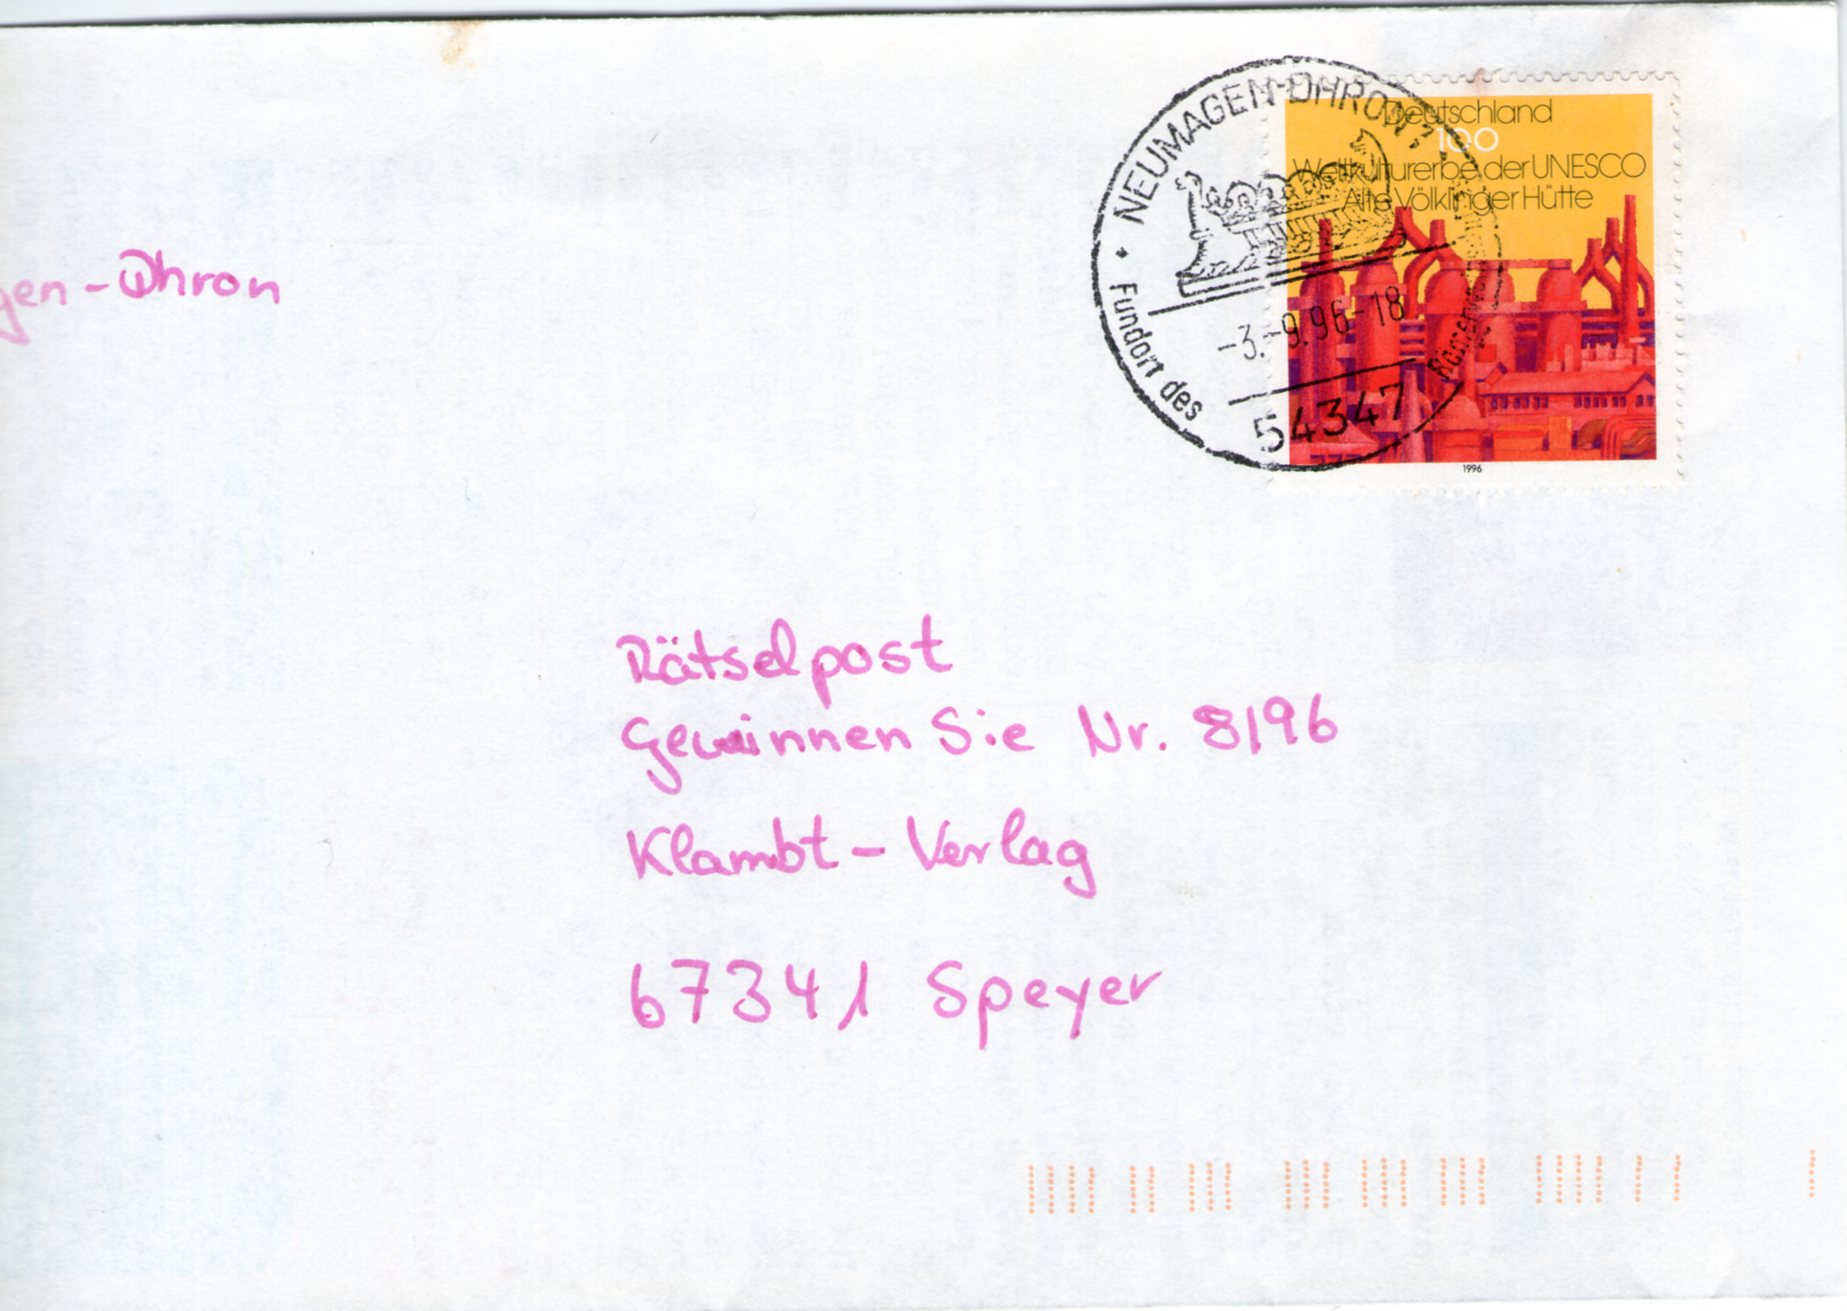 gen-Dhron
NEUMAGEN-DHRON
Fundort des
-3.-9.96-18
54347
Deutschland
100
Weltkulturerbe der UNESCO
Alte Völklinger Hütte
1996
Rätselpost
Gewinnen Sie Nr. 8/96
Klambt-Verlag
67341 Speyer